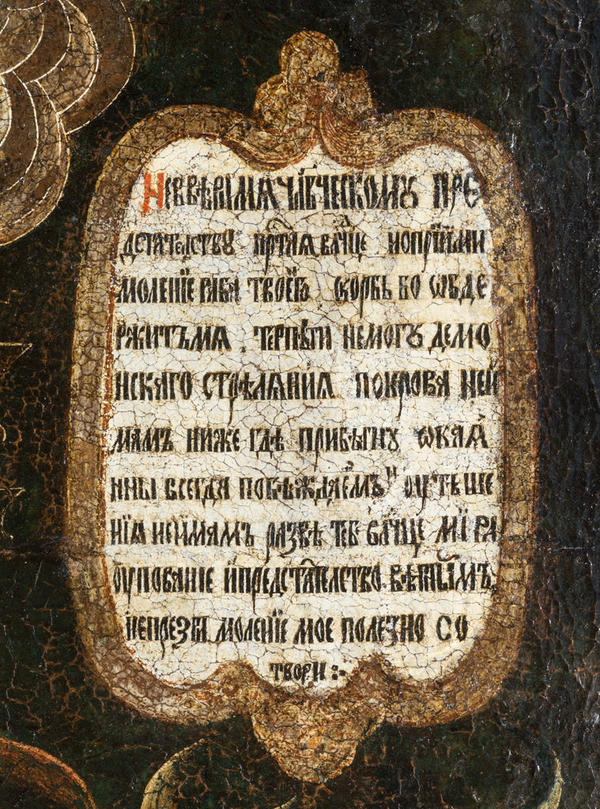 Не ввѣри мѧ чл҃вческомꙋ пре
дстателствꙋ прⷭ҇таѧ влⷣчце но прїими
моленїе раба твоегѡ скорбь бо ѡбде
ржитъ мѧ . терпѣти не могꙋ демо
нскаго стрѣлѧниѧ покрова неи
мамъ ниже гдѣ прибѣгнꙋ ѡкаѧ
нны всегда побѣждаемъ и оутѣше
нїѧ не имамъ развѣ тебѣ влⷣчце мира
оупование и предстателство вѣрнымъ
не презри моленїе мое полезно со
твори :~